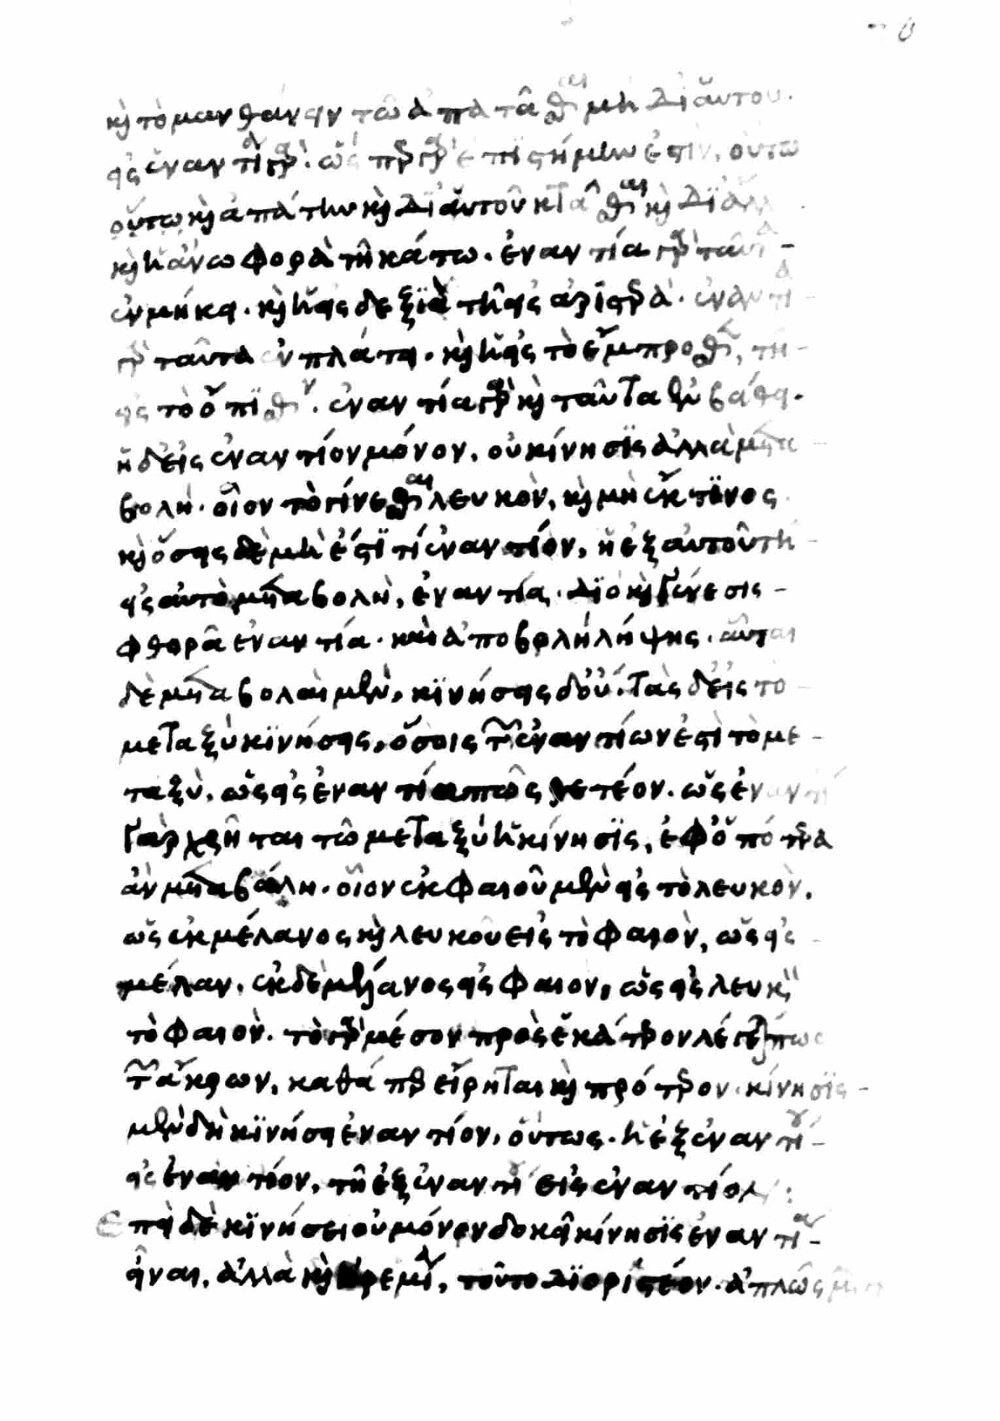 καὶ τὸ μανθάνειν τῶ ἀπατᾶσθαι μὴ δι' αὑτοῦ
εἰς ἐναντία γάρ. ὥσπερ γὰρ ἐπιστήμην ἐστὶν, οὕτω
οὕτω καὶ ἀπάτην καὶ δι' αὑτοῦ κτᾶσθαι καὶ δι' ἄλλ
καὶ ἡ ἄνω φορὰ τῆ κάτω. ἐναντία γὰρ ταῦτα
ἐν μήκει. καὶ ἡ εἰς δεξιὰ τῆ εἰς ἀριστερά. ἐναντία
γὰρ ταῦτα ἐν πλάτει. καὶ ἡ εἰς τὸ ἔμπροσθεν, τῆ
εἰς τὸ ὄπισθεν. ἐναντία γὰρ καὶ ταῦτα ἐν βάθει.
ἡ δ' εἰς ἐναντίον μόνον, οὐ κίνησις ἀλλὰ μετα
βολή. οἷον τὸ γίνεσθαι λευκὸν, καὶ μὴ ἔκ τινος
καὶ ὅσοις δὲ μὴ ἔστι τί ἐναντίον, ἡ ἐξ αὐτοῦ τῆ
εἰς αὐτὸ μεταβολὴ, ἐναντία. διὸ καὶ γένεσις
φθορᾶ ἐναντία. καὶ ἀποβολὴ λήψει. αὗται
δὲ μεταβολαὶ μὲν, κινήσεις δ' οὔ. τὰς δ' εἰς τὸ
μεταξὺ κινήσεις, ὅσοις τῶν ἐναντίων ἐστὶ τὸ με
ταξὺ, ὡς εἰς ἐναντία πως θετέον. ὡς ἐναντίω
γὰρ χρῆται τῶ μεταξὺ ἡ κίνησις, ἐφ' ὁπότερα
ἂν μεταβάλη. οἷον ἐκ φαιοῦ μὲν εἰς τὸ λευκὸν,
ὡς ἐκ μέλανος καὶ λευκοῦ εἰς τὸ φαιὸν, ὡς εἰς
μέλαν. ἐκ δὲ μέλανος εἰς φαιον, ὡς εἰς λευκὸν
τὸ φαιὸν. τὸ γὰρ μέσον πρὸς ἑκάτερον λέγεταί πως
τῶν ἄκρων, καθάπερ εἴρηται καὶ πρότερον. κίνησις
μὲν δὴ κινήσει ἐναντίον, οὕτως. ἡ ἐξ ἐναντίου
εἰς ἐναντίον, τῆ ἐξ ἐναντίου εἰς ἐναντίον:
Ἐπεὶ δὲ κινήσει οὐ μόνον δοκεῖ κίνησις ἐναντία
εἶναι, ἀλλὰ καὶ ἠρεμία, τοῦτο διοριστέον. ἁπλῶς μὲν